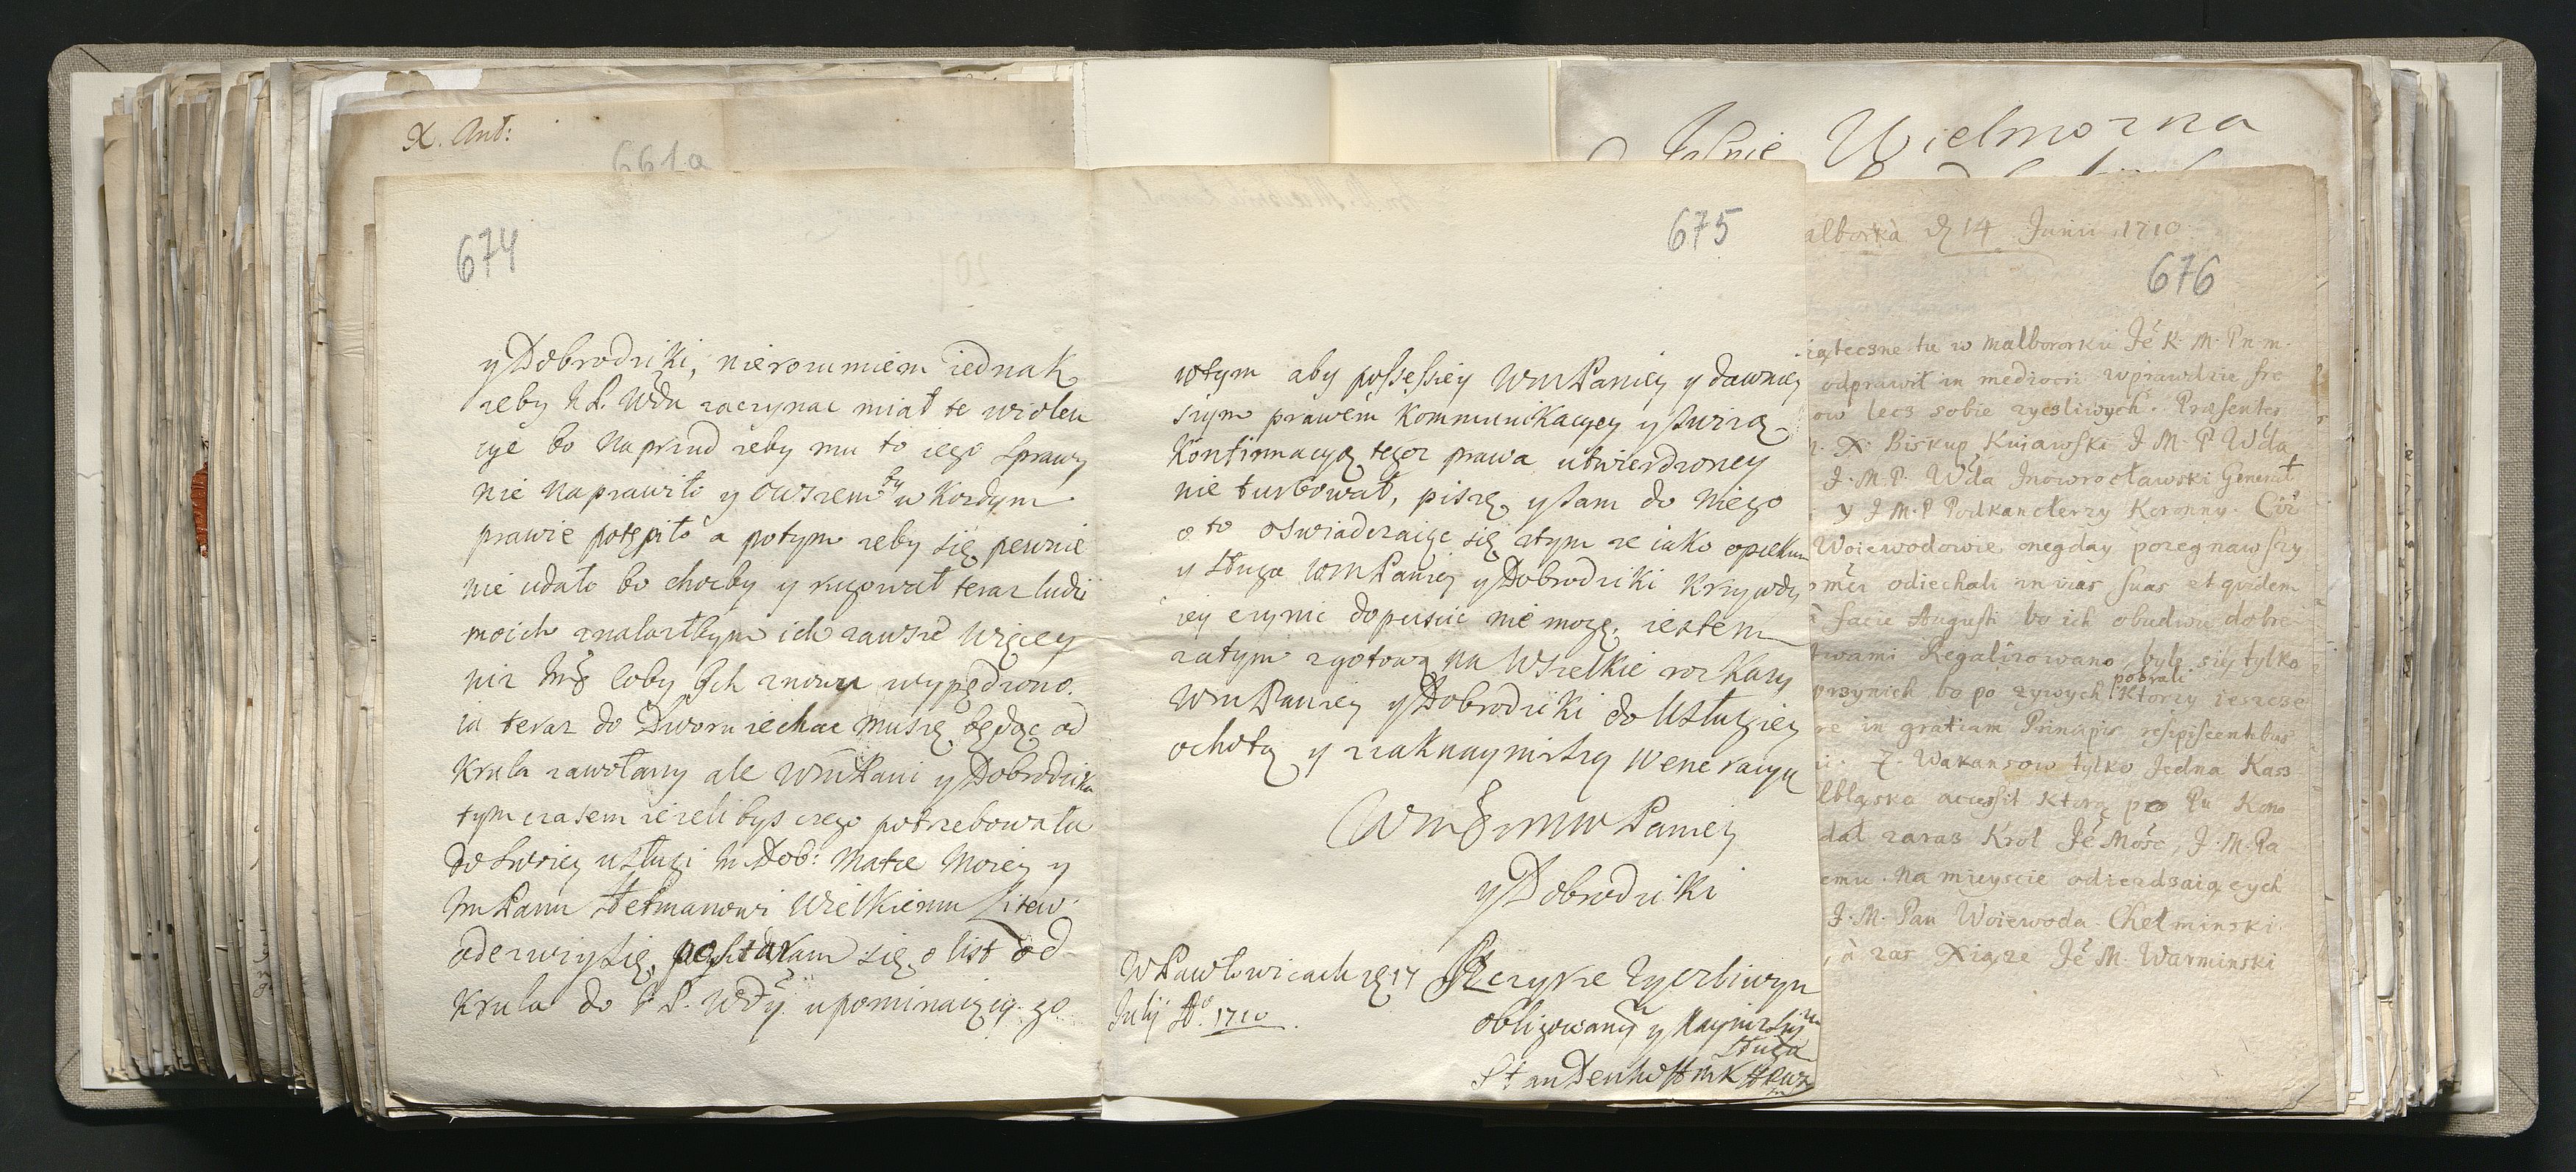 X. Ant:
661a
674
y Dobrodziki, nierozumiem iednak
zeby J. P. Wda zaczynac miał te wiolen
cye bo naprzud zeby mu to iego sprawy
nie naprawiło y owszem by w kozdym
prawie potępiło a potym zeby się pewnie
nie udało bo chocby y rugował teraz ludzi
moich znalazłbym ich zawsze więcey
niz coby ich znowu wypędzono.
ia teraz do Dworu iechac muszę będąc od
Krula zawołany ale WmPani y Dobrodzika
tym czasem iezeli bys czego potrzebowała
do swoiey usługi Dob: Matce moiey y
JmPanu Hetmanowi Wielkiemu Litew:
odezwiy się, postaram się o list od
Krula do J. P. Wdy upominaiący go
675
wtym aby possessiey WmPaniey y dawniey
szym prawem kommunikacyey y swieżą
Konfirmacyą tegoz prawa utwierdzoney
nie turbował, piszę y sam do niego
o to oswiadczaiąc się ztym ze iako opiekun
y sługa WmPaniey y Dobrodziki krzywdy
iey czynic dopuscic nie mogę, iestem
zatym zgotową na wszelkie rozkazy
WmPaniey y Dobrodziki do usłuzięy
ochotą y ziaknaynizszą weneracyą
Paniey
y Dobrodziki
W Pawłowicach 17
Julij Ao. 1710
Szczyrze zyczliwym
obligowanym y Nayniższym
sługą
Denhoff
Jasnie Wielmozna
alborka d 14 Junii 1710
676
iąteczne tu w Malbororku Je K. M. P n m.
odprawił in mediocri wprawdzie fre
ow lecz sobie zyczliwych. Præsentes
X. Biskup Kuiawski J M. P Wda
J. M. P. Wda Jnowrocławski Generał
y J M. P Podkanclerzy Koronny. Cii
Woiewodowie onegday pozegnawszy
odiechali in vias suas et quidem
facie Augusti bo ich obudwu dobre
twami Regalizowano, byle się tylko
przynich bo po zywych pobrali ktorzy ieszcze
re in gratiam Principis resipiscentibus
Z. Wakansow tylko Jedna Kasz
lbląska accessit ktorą pro Pu Kono
dał zaras Krol Je Mość, J. M. Pa
emu. Na mieysce odiezdzaiących
J. M. Pan Woiewoda Chełminski.
, à zas Xiąze Je M. Warminski